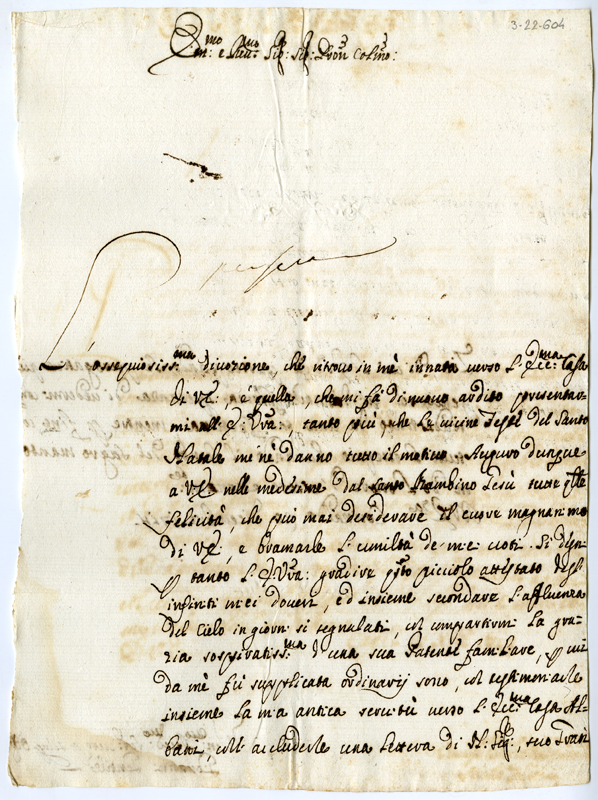 3-22-604
Em:mo e Rev:mo Sig: Sig: Pron Colmo:
L'ossequiosiss:ma divozione, che ritrovo in mè innata verso l'Ecc:ma Casa
di VE: è quella, che mi fà di nuovo ardito presentar-
mi all' E: Vra:, tanto più, che le vicine Feste del Santo
Natale me nè danno tutto il motivo. Auguro dunque
a VE nelle medesime dal Santo Bambino Gesù tutte q:lle
felicità, che può mai desiderare il cuore magnanimo
di VE:, e bramarle l'umiltà de miei voti. Si degni
tanto l'E:Vra: gradire q:sto picciolo attestato degl'
infiniti miei doveri, ed insieme secondare l'affluenza
del Cielo in giorni si segnalati, col compartirmi la gra-
zia sospiratiss:ma d'una sua Patente famigliare, cui
da mè fù supplicata ordinarij sono, col testimoniarle
insieme la mia antica servitù verso l'Ecc:ma Casa Al-
bani, coll' accluderle una lettera di N: Sig:, suo Gran